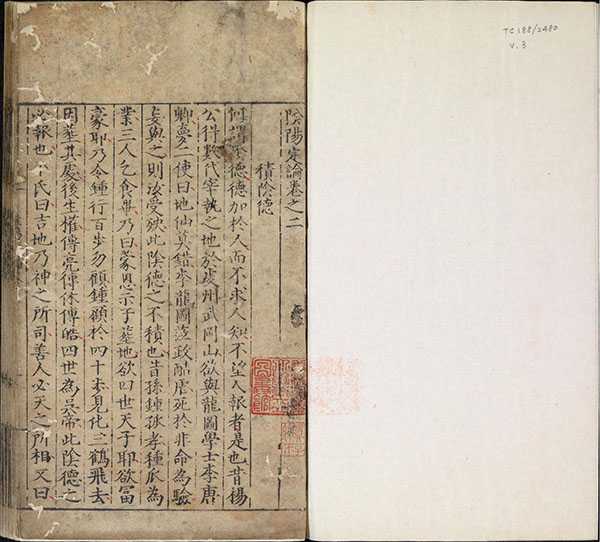 TC 188/2480
v. 3
陰陽定論卷之二
積陰德
何謂陰德德加於人而不求人知不望人報者是也昔楊
公得數代宰執之地於虔州武岡山欲與龍圖學士李唐
卿夢二使曰地仙莫錯李龍圖蒞政酷虐死於非命為驗
妄與之則汝受殃此陰德之不積也昔孫鍾孤孝種瓜為
業三人乞食畢乃曰蒙恩示子葬地欲四世天子耶欲富
豪耶乃令鍾行百步勿顧鍾顧於四十步見化三鶴飛去
因葬其處後生權傳亮傳休傳皓四世為吳帝此陰德之
必報也卜氏曰吉地乃神之所司善人必天之所相又曰